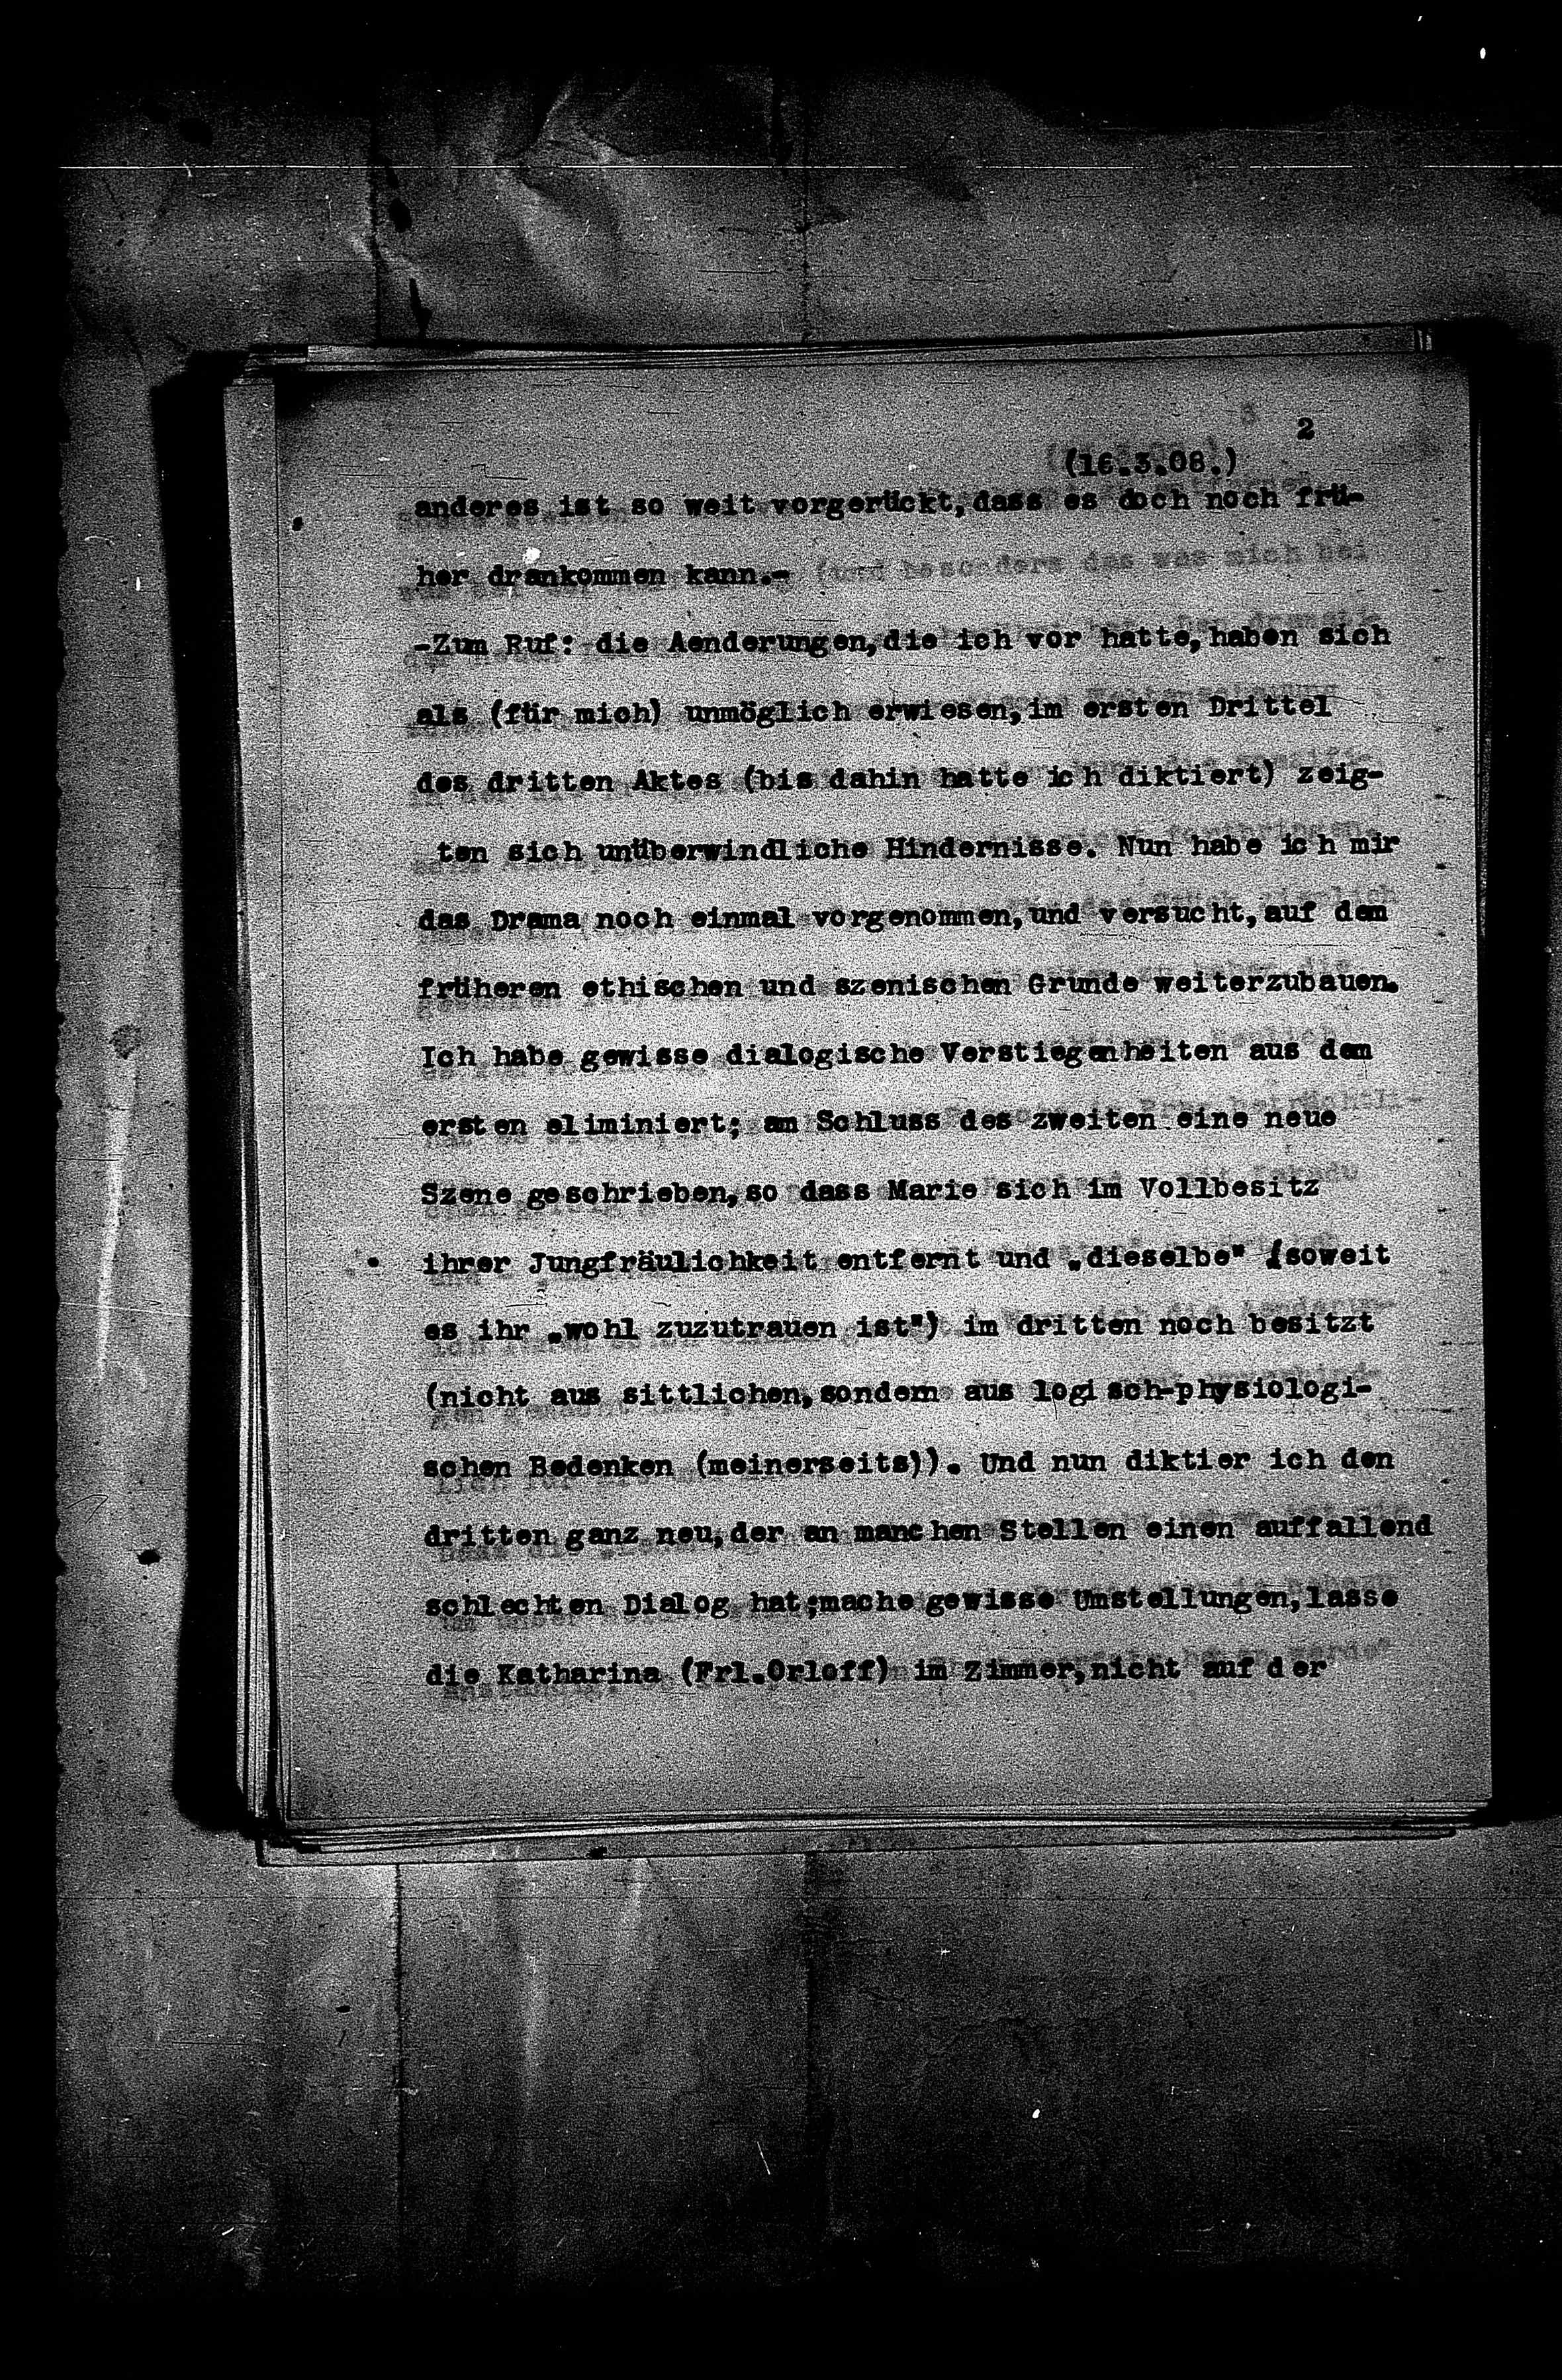 2
(16.3.08.)
anderes ist so weit vorgerückt, dass es doch noch frü-
her drankommen kann.-
-Zum Ruf: die Aenderungen, die ich vor hatte, haben sich
als (für mich) unmöglich erwiesen, im ersten Drittel
des dritten Aktes (bis dahin hatte ich diktiert) zeig-
ten sich unüberwindliche Hindernisse. Nun habe ich mir
das Drama noch einmal vorgenommen, und versucht, auf dem
früheren ethischen und szenischen Grunde weiterzubauen.
Ich habe gewisse dialogische Verstiegenheiten aus dem
ersten eliminiert; am Schluss des zweiten eine neue
Szene geschrieben, so dass Marie sich im Vollbesitz
ihrer Jungfräulichkeit entfernt und „dieselbe" (soweit
es ihr „wohl zuzutrauen ist") im dritten noch besitzt
(nicht aus sittlichen, sondern aus logisch-physiologi-
schen Bedenken (meinerseits)). Und nun diktier ich den
dritten ganz neu, der an manchen Stellen einen auffallend
schlechten Dialog hat; mache gewisse Umstellungen, lasse
die Katharina (Frl. Orloff) im Zimmer, nicht auf der